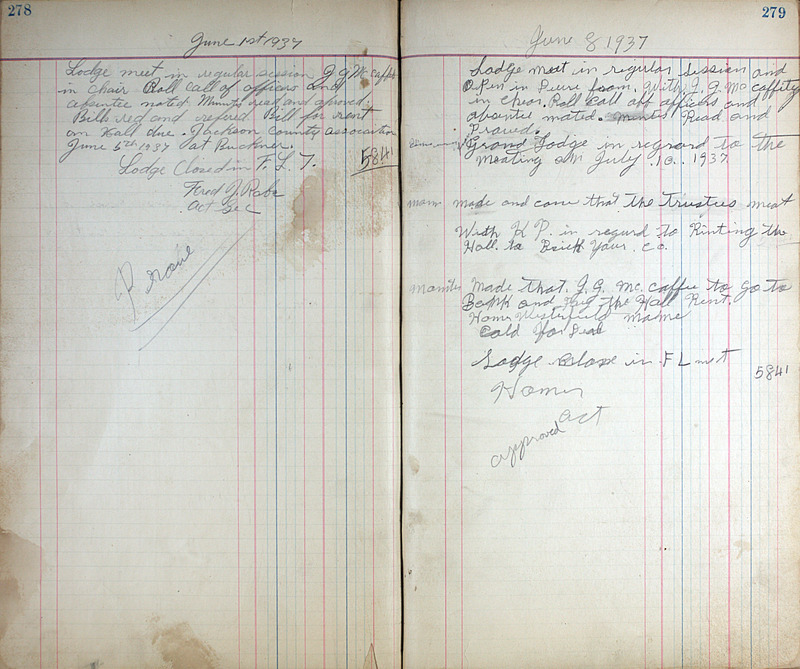 278
June 1st 1937
Lodge meet in regular session J. G. Mc caffit
in chair Roll call of officers and
absentee noted. Minuts read and aproved.
Bills red and refured Bill for rent
on Hall due. Jackson county association
June 6th 1937 at Buckner.
Lodge Closed in F. L. T. 5841
Fred J Rabe
Act Sec
P roave
279
June 8 1937
Lodge meet in regular session and
O Pen in Pierre foam. With J. G. Mc caffity
in chear. Roll call off officers and
absentee mated. ments Read and
Praved.
Grand Lodge in regrard to the
Meating on July .10.. 1937
made and carre that the Trustees meat
With K P. in regurd to Rinting the
Hall. to Brick Your. co.
Made that. J. G. Mc. caffee to go to
Bank and the Hall Rent.
Homer Westerfield
Cold for
Lodge Close in F L 5841
Homer
act
approved